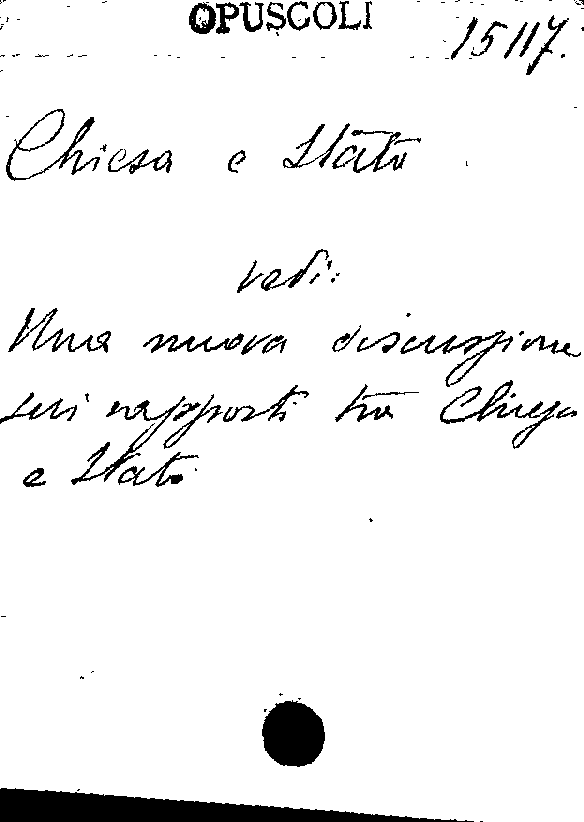 OPUSCOLI
15117.
Chiesa e Stato
vedi:
Una nuova discussione
sui rapporti tra Chiesa
e Stato